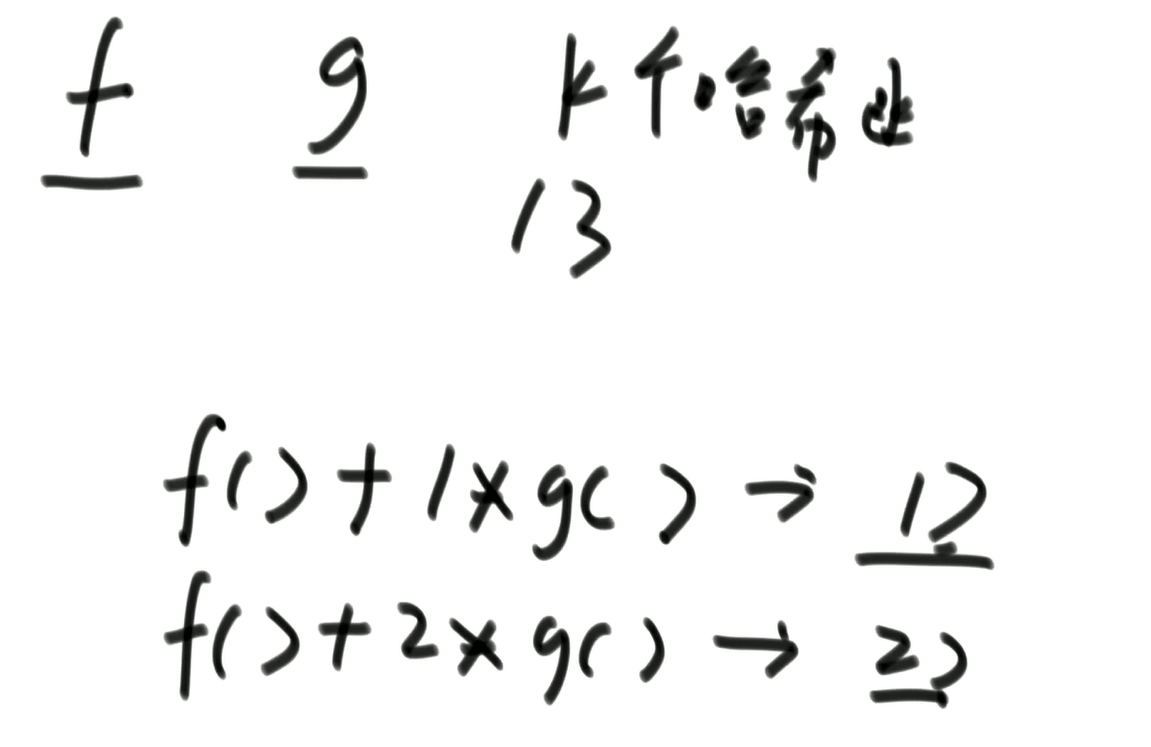 f g k个哈希函
13
f()+1×g()→1)
f()+2×g()→2)